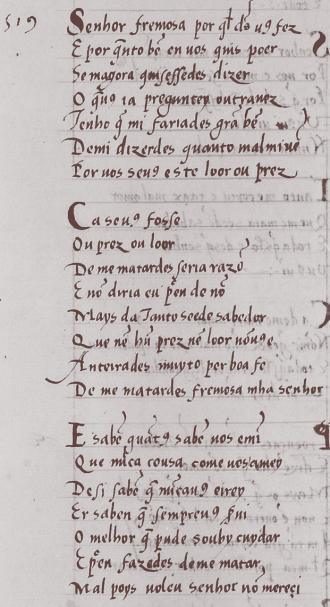 519
Senhor fremosa por q̄l d̄s uꝯ fez
E por q̄nto bē en vos quis poer
Se magora quisessedes dizer
O q̄uꝯ ia preguntey outra uez
Tenho q̄ mi fariades grā bē
De mi dizerdes quanto mal mi uē
Por vos seuꝯ este loor ou prez
Ca seuꝯ fosse
Ou prez ou loor
De me matardes seria razō
E nō diria eu pᵉen de nō
Mays da tanto seede sabedor
Que nē hū prez nē loor nōuꝯ e
Anteirades muyto per boa fe
De me matardes fremosa mha senhor
E sabē quātꝯ sabē vos e mi
Que nūca cousa come uos amey
Desi sabē q̄ nūcauꝯ eirey
Er saben q̄ sempreuꝯ ſui
O melhor q̄ pude souby cuydar
E pᵉen fazedes de me matar
Mal poys uoleu senhor nō mereçi